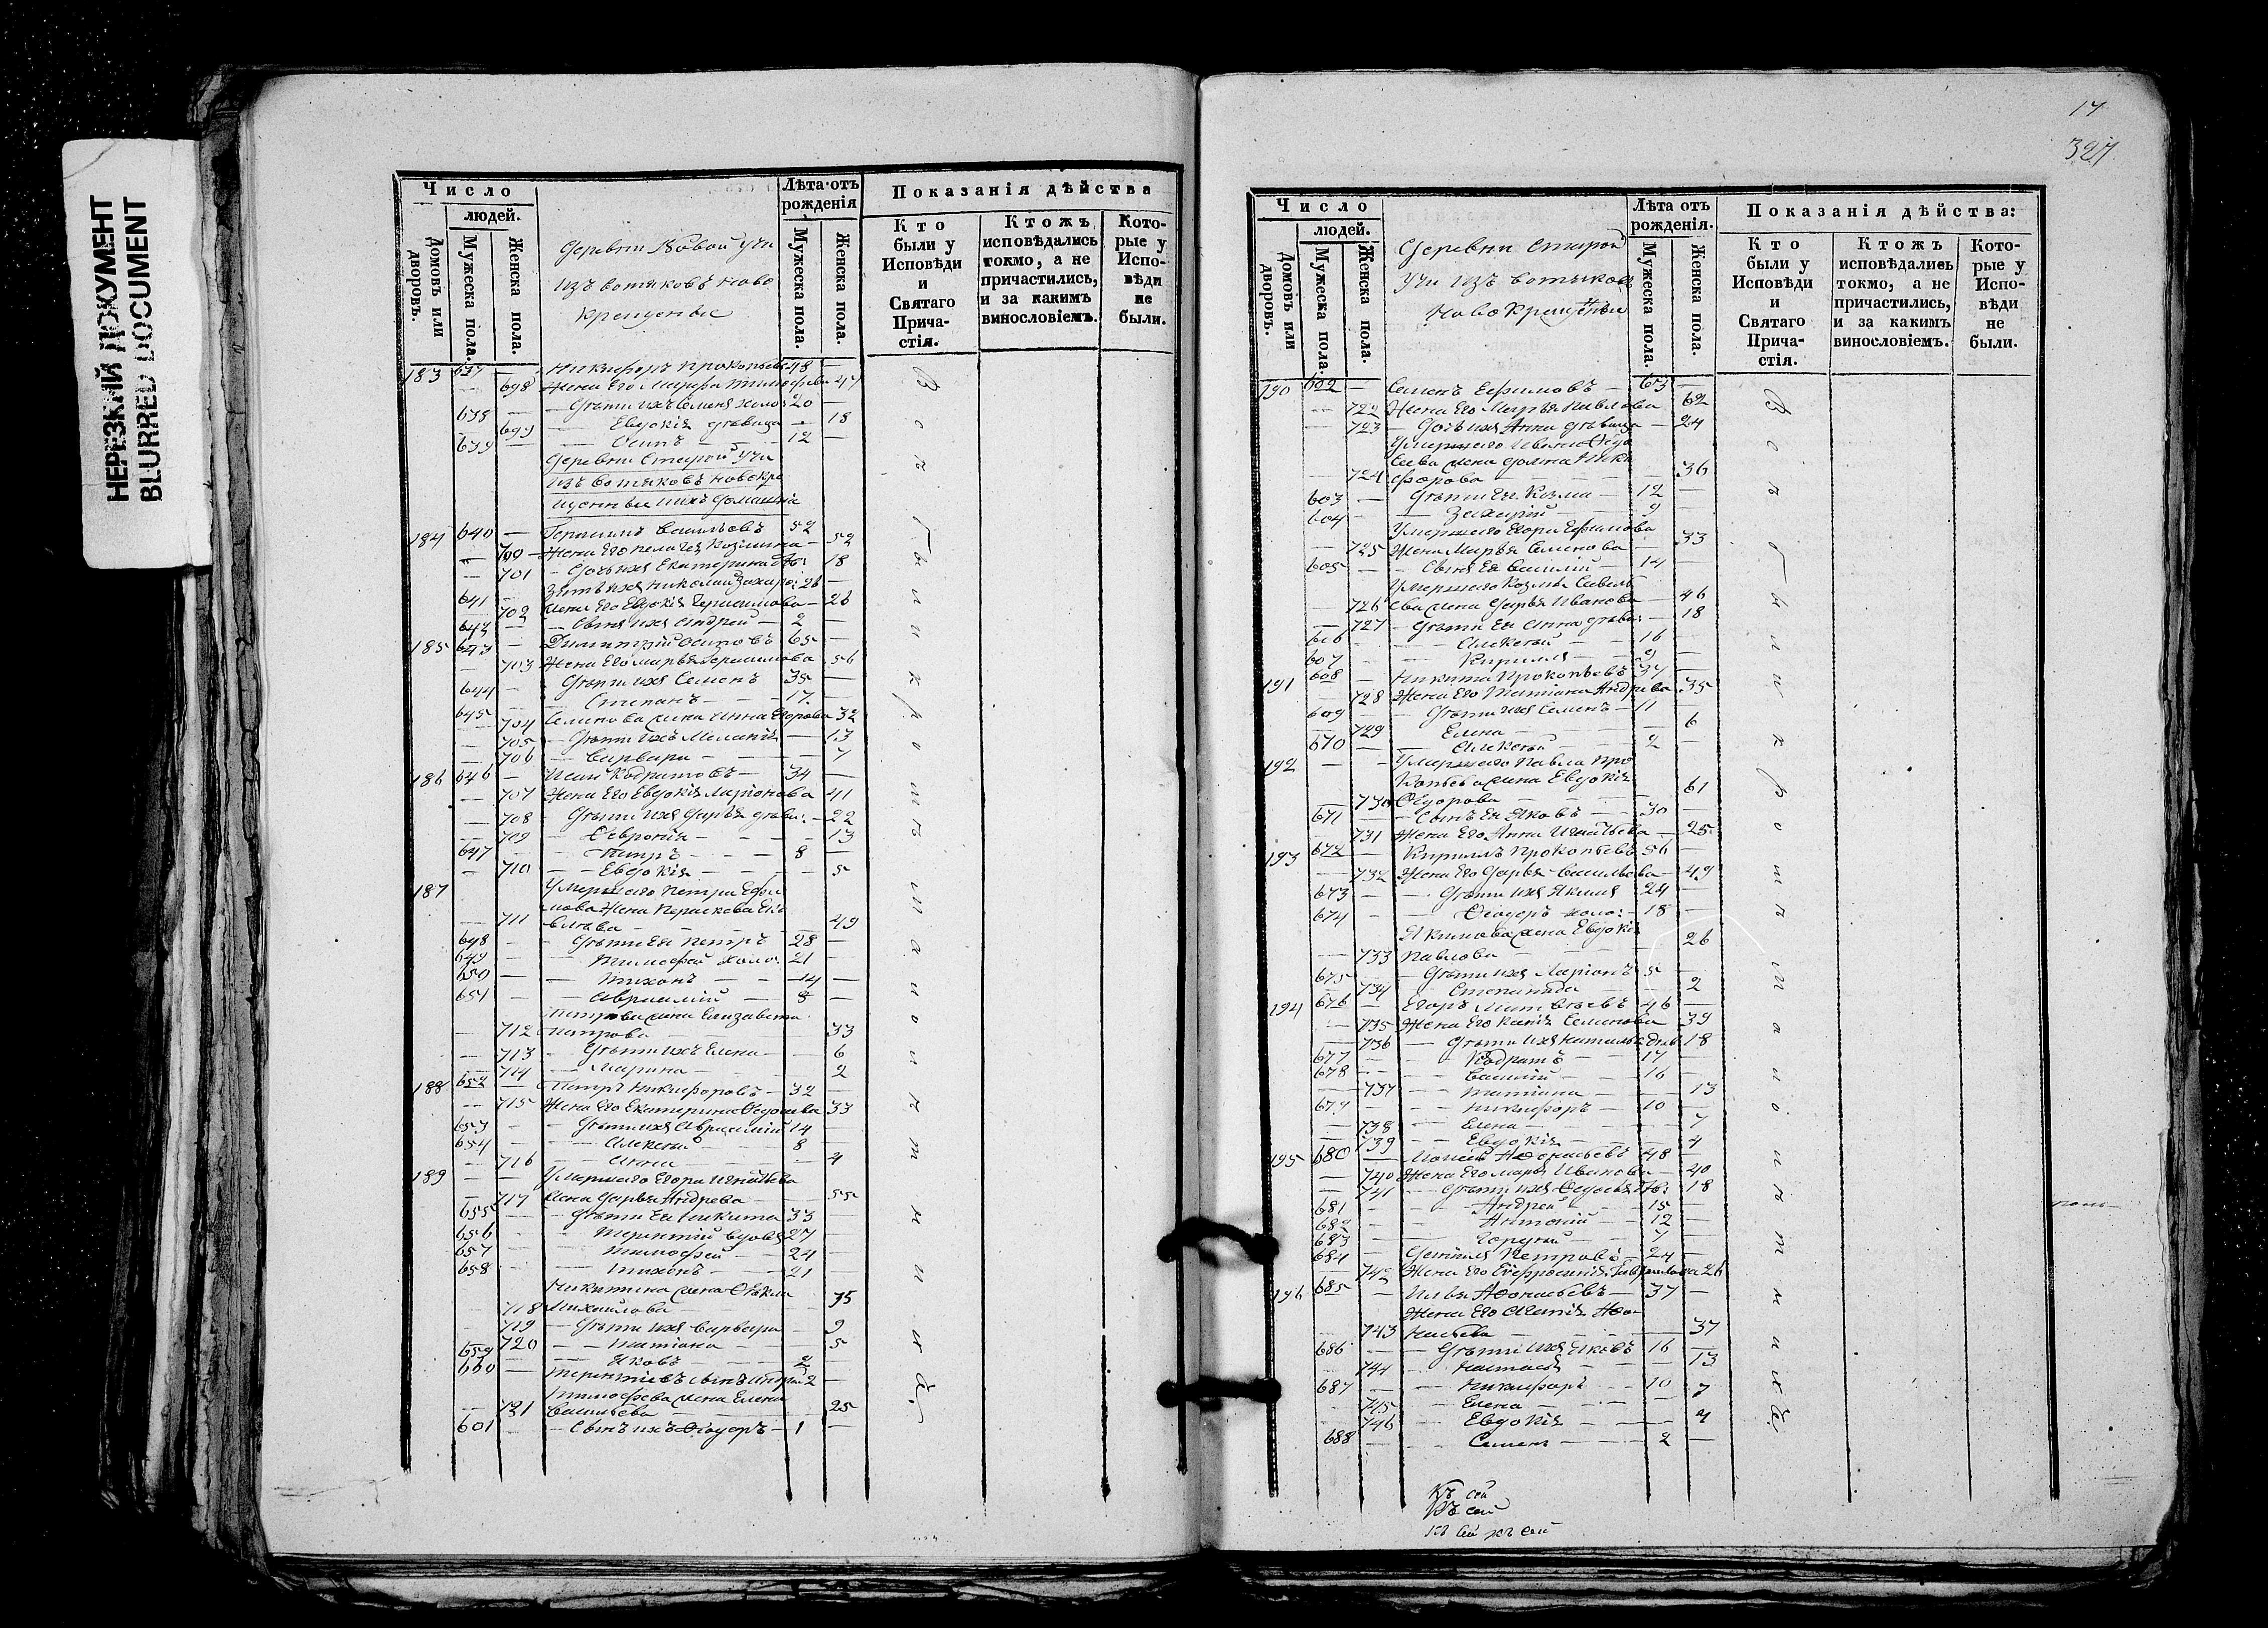 НЕРЕЗКИЙ ДОКУМЕНТ
BLURRED DOCUMENT
Число
людей.
Домовъ или дворовъ.
Мужеска пола.
Женска пола.
Деревни Новой Учи
изъ вотяковъ ново
крещеные
Лѣта отъ рожденія
Мужеска пола.
Женска пола.
Показанія дѣйства
Кто были у Исповѣди и Святаго Прича-стія.
Ктожъ исповѣдались токмо, а не причастились, и за какимъ винословіемъ.
Кото-рые у Испо-вѣди не были.
183 637 — Никифоръ Прокопьевъ 48 —
— 698 Жена его Мавра Тимофеева 47
638 — Дѣти ихъ Семенъ холос 20 —
— 699 Евдокія дѣвица — 18
639 — Осипъ 12 —
Деревни Старой Учи
изъ вотяковъ новокре
щеныи ихъ домашнія
184 640 — Герасимъ Васильевъ 52
— 700 Жена его Пелагея Козмина — 52
— 701 Дочь ихъ Екатерина 18
641 — Зять ихъ Николай Захаро: 26 —
702 Жена его Евдокія Герасимова — 26
642 — Сынъ ихъ Андрей — 2 —
185 643 — Димитрій Осиповъ 65 —
— 703 Жена его Марья Герасимова 56
644 — Дѣти ихъ Семенъ 35 —
645 — Степанъ — 17 —
— 704 Семенова жена Анна Егорова 32
— 705 Дѣти ихъ Меланія — 13
— 706 Варвара — 7
186 646 — Исай Кодратовъ — 34 —
— 707 Жена его Евдокія Ларіонова 41
— 708 Дѣти ихъ Дарья дѣви: — 22
— 709 Февронія — 13
647 — Петръ — 8 —
— 710 Евдокія — 5
187 Умершаго Петра Ефи
мова жена Параскева
— 711 49
648 — Дѣти ея Петръ 28 —
649 — Тимофей холо: 21 —
650 — Тихонъ — 14 —
651 — Авраамій — 8 —
Петрова жена Елизавета
— 712 Петрова 33
— 713 Дѣти ихъ Елена — 6
— 714 Марина — 2
188 652 — Петръ Никифоровъ — 32 —
— 715 Жена его Екатерина Федосеева 33
653 — Дѣти ихъ Авраамій 14
654 — Алексей 8 —
— 716 Анна — 4
189 — — Умершаго Егора Игнатьева
— 717 жена Дарья Андреева — 55
655 — Дѣти ея Никита 33 —
656 — Терентій вдовъ 27 —
657 — Тимофей 24 —
658 — Тихонъ — 21 —
Никитина жена Фекла
— 718 Михайлова 35
— 719 Дѣти ихъ Варвара — 9
— 720 Татіана — 5
659 — Яковъ — 2
660 — Терентіевъ сынъ Андрей 2 —
Тимофеева жена Елена
— 721 Васильева — 25
601 — Сынъ ихъ Ѳеодоръ — 1 —
Воисповедникрошт и они всѣ
17
327
Число
людей.
Домовъ или дворовъ.
Мужеска пола.
Женска пола.
Деревни Старой
Учи изъ вотяковъ
Новокрещеныи
Лѣта отъ рожденія.
Мужеска пола.
Женска пола.
Показанія дѣйства:
Кто были у Исповѣди и Святаго Прича-стія.
Ктожъ исповѣдались токмо, а не причастились, и за какимъ винословіемъ.
Кото-рые у Испо-вѣди не были.
190 602 — Семенъ Ефимовъ — 63 —
— 722 Жена его Марья Павлова 62
— 723 Дочь ихъ Анна дѣвица — 24
Умершаго Ивана Федо
сеева жена Домна Ники
— 724 форова — 36
603 — Дѣти ея Козма — 12 —
604 — Захарій — 9 —
Умершаго Егора Ефимова
— 725 Жена Марья Семенова — 33
605 — Сынъ ея Василій — 14 —
Умершаго Козмы Савель
— 726 ева жена Дарья Иванова — 46
— 727 Дѣти ея Анна дѣви: — 18
606 — Алексей — 16 —
607 — Кириллъ — 9 —
191 608 — Никита Прокопьевъ 37 —
— 728 Жена его Татіана Андреева 35
609 — Дѣти ихъ Семенъ — 11 —
— 729 Елена — 6
670 — Алексей — 2 —
192 — — Умершаго Павла Про
копьева жена Евдокія
— 730 Ѳедорова — 61
671 — Сынъ ея Яковъ — 30 —
— 731 Жена его Анна Игнатьева — 25
193 672 — Кириллъ Прокопьевъ 56 —
— 732 Жена его Дарья Васильева — 49
673 — Дѣти ихъ Якимъ 24 —
674 — Ѳеодоръ холо: — 18 —
Якимова жена Евдокія
— 733 Павлова — 26
675 — Дѣти ихъ Ларіонъ 5 —
— 734 Степанида — 2
194 676 — Егоръ Матвѣевъ 46 —
— 735 Жена его Ксенія Семенова 39
— 736 Дѣти ихъ Наталья дѣв 18
677 — Кодратъ — 17 —
678 — Василій — 16 —
— 737 Татіана — 13
679 — Никифоръ — 10 —
— 738 Елена — 7
— 739 Евдокія — 4
195 680 — Моисей Афонасьевъ 48 —
— 740 Жена его Марья Иванова — 40
— 741 Дѣти ихъ Федосья 18
681 — Андрей — 15 —
682 — Антоній — 12 —
683 — Гордѣй — 7 —
684 — Петровъ 24 —
— 742 Жена его Евфросинія Гаврилова 26
196 685 — Илья Афонасьевъ — 37 —
Жена его Афо
— 743 насьева — 37
686 — Дѣти ихъ Яковъ 16 —
— 744 Настасья — 13
687 — Никифоръ — 10 —
— 745 Елена — 7
— 746 Евдокія — 4
688 — Симеонъ — 2 —
Къ сей
Къ сей
къ сей къ сей